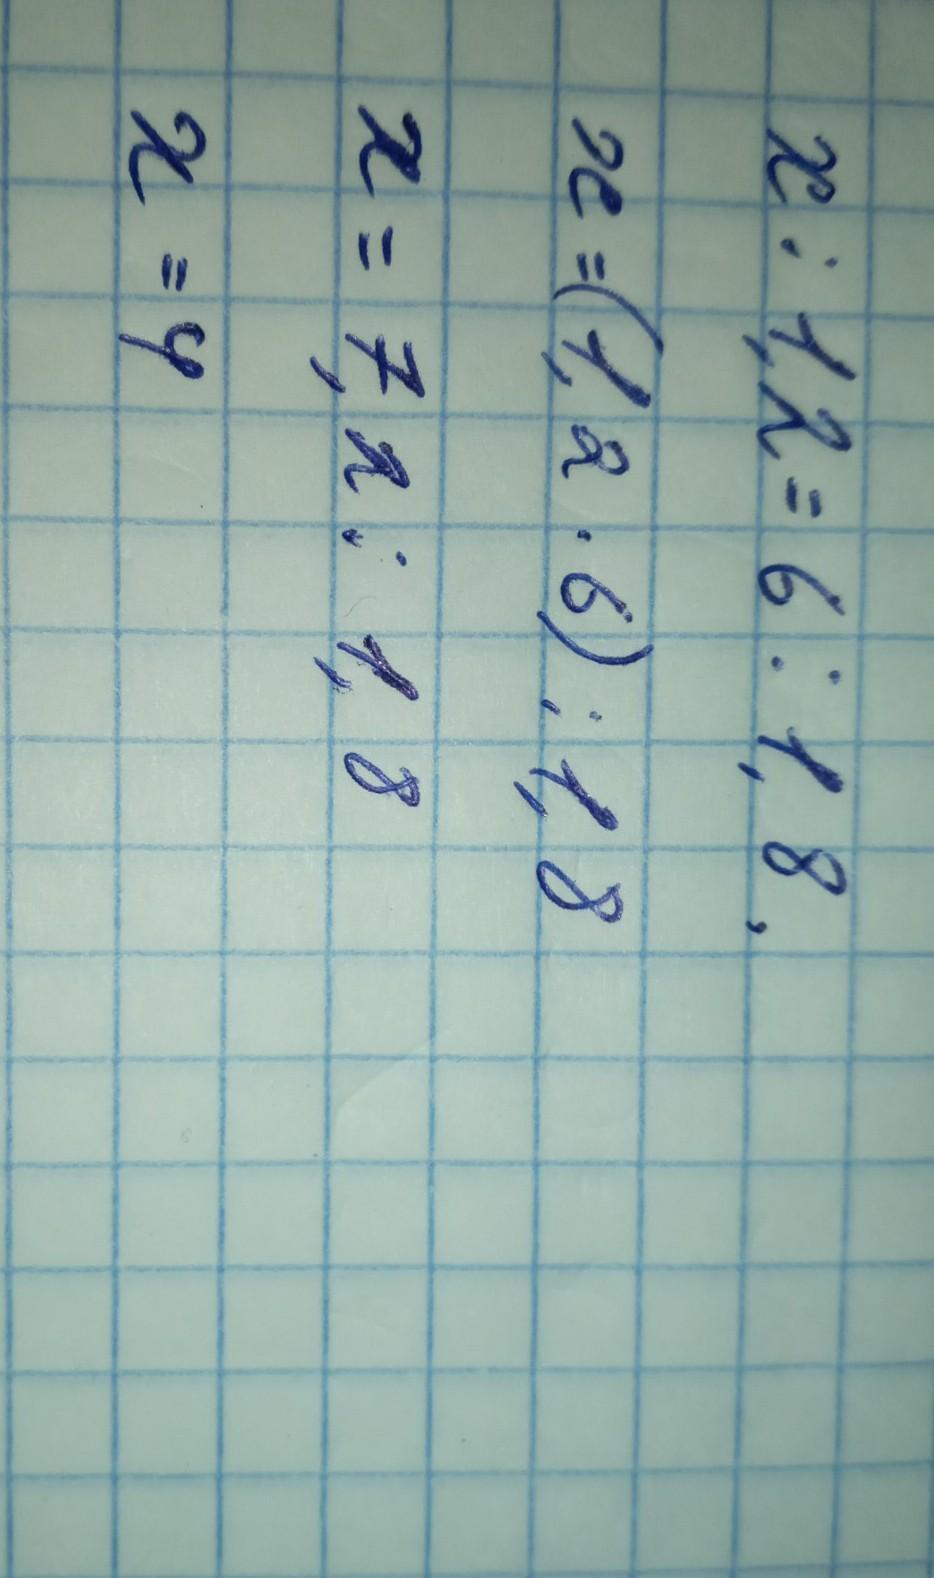 x : 1,2 = 6 : 1,8,
x = (1,2 · 6) : 1,8
x = 7,2 : 1,8
x = 4